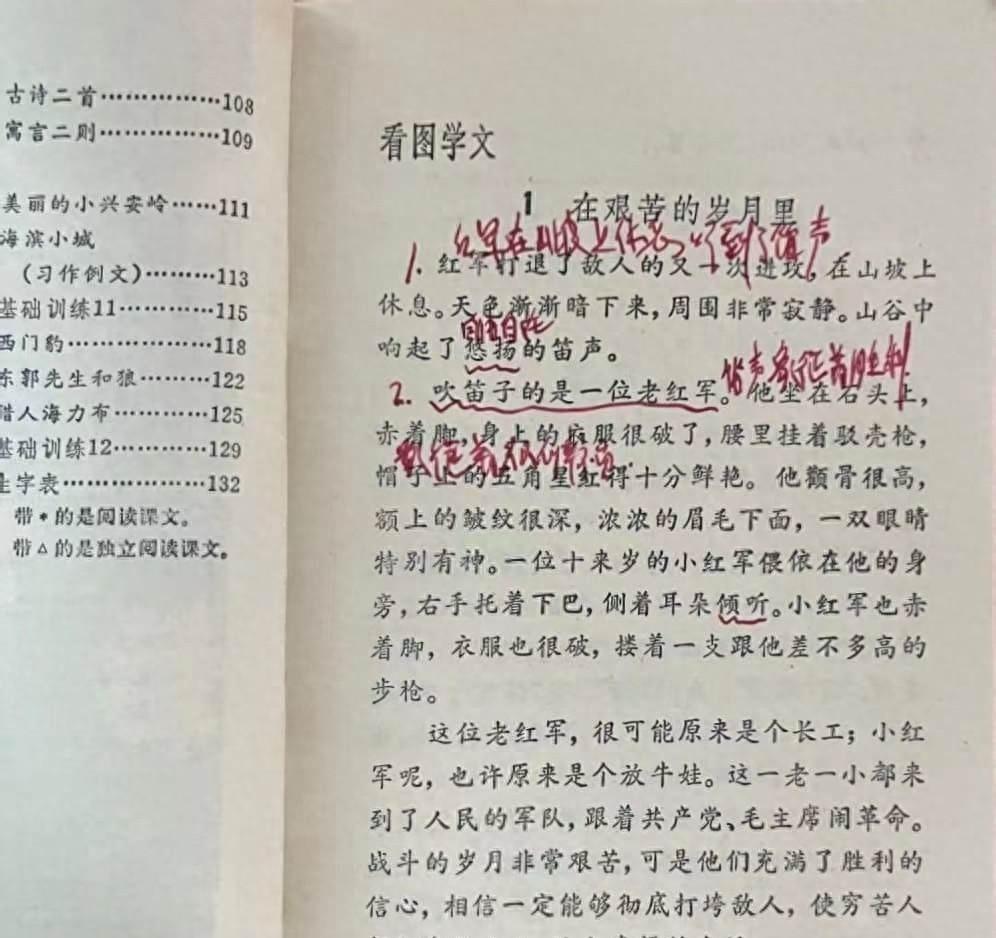 古诗二首……………108
寓言二则……………109
美丽的小兴安岭……111
海滨小城
(习作例文)………113
基础训练11…………115
西门豹………………118
东郭先生和狼………122
猎人海力布…………125
基础训练12…………129
生字表………………132
带*的是阅读课文。
带△的是独立阅读课文。
看图学文
1 在艰苦的岁月里
红军在山坡上休息,听到了笛声
1. 红军打退了敌人的又一次进攻。在山坡上
休息。天色渐渐暗下来,周围非常寂静。山谷中
响起了悠扬的笛声。
笛声寄托着胜利
2. 吹笛子的是一位老红军。他坐在石头上,
赤着脚,身上的衣服很破了,腰里挂着驳壳枪,
帽子上的五角星红得十分鲜艳。他颧骨很高,
额上的皱纹很深,浓浓的眉毛下面,一双眼睛
特别有神。一位十来岁的小红军偎依在他的身
旁,右手托着下巴,侧着耳朵倾听。小红军也赤
着脚,衣服也很破,搂着一支跟他差不多高的
步枪。
这位老红军,很可能原来是个长工;小红
军呢,也许原来是个放牛娃。这一老一小都来
到了人民的军队,跟着共产党、毛主席闹革命。
战斗的岁月非常艰苦,可是他们充满了胜利的
信心,相信一定能够彻底打垮敌人,使穷苦人